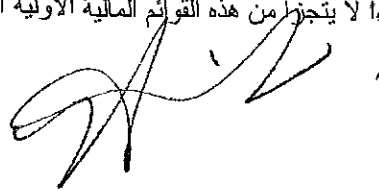 لا يتجزأ من هذه القوائم المالية الأولية